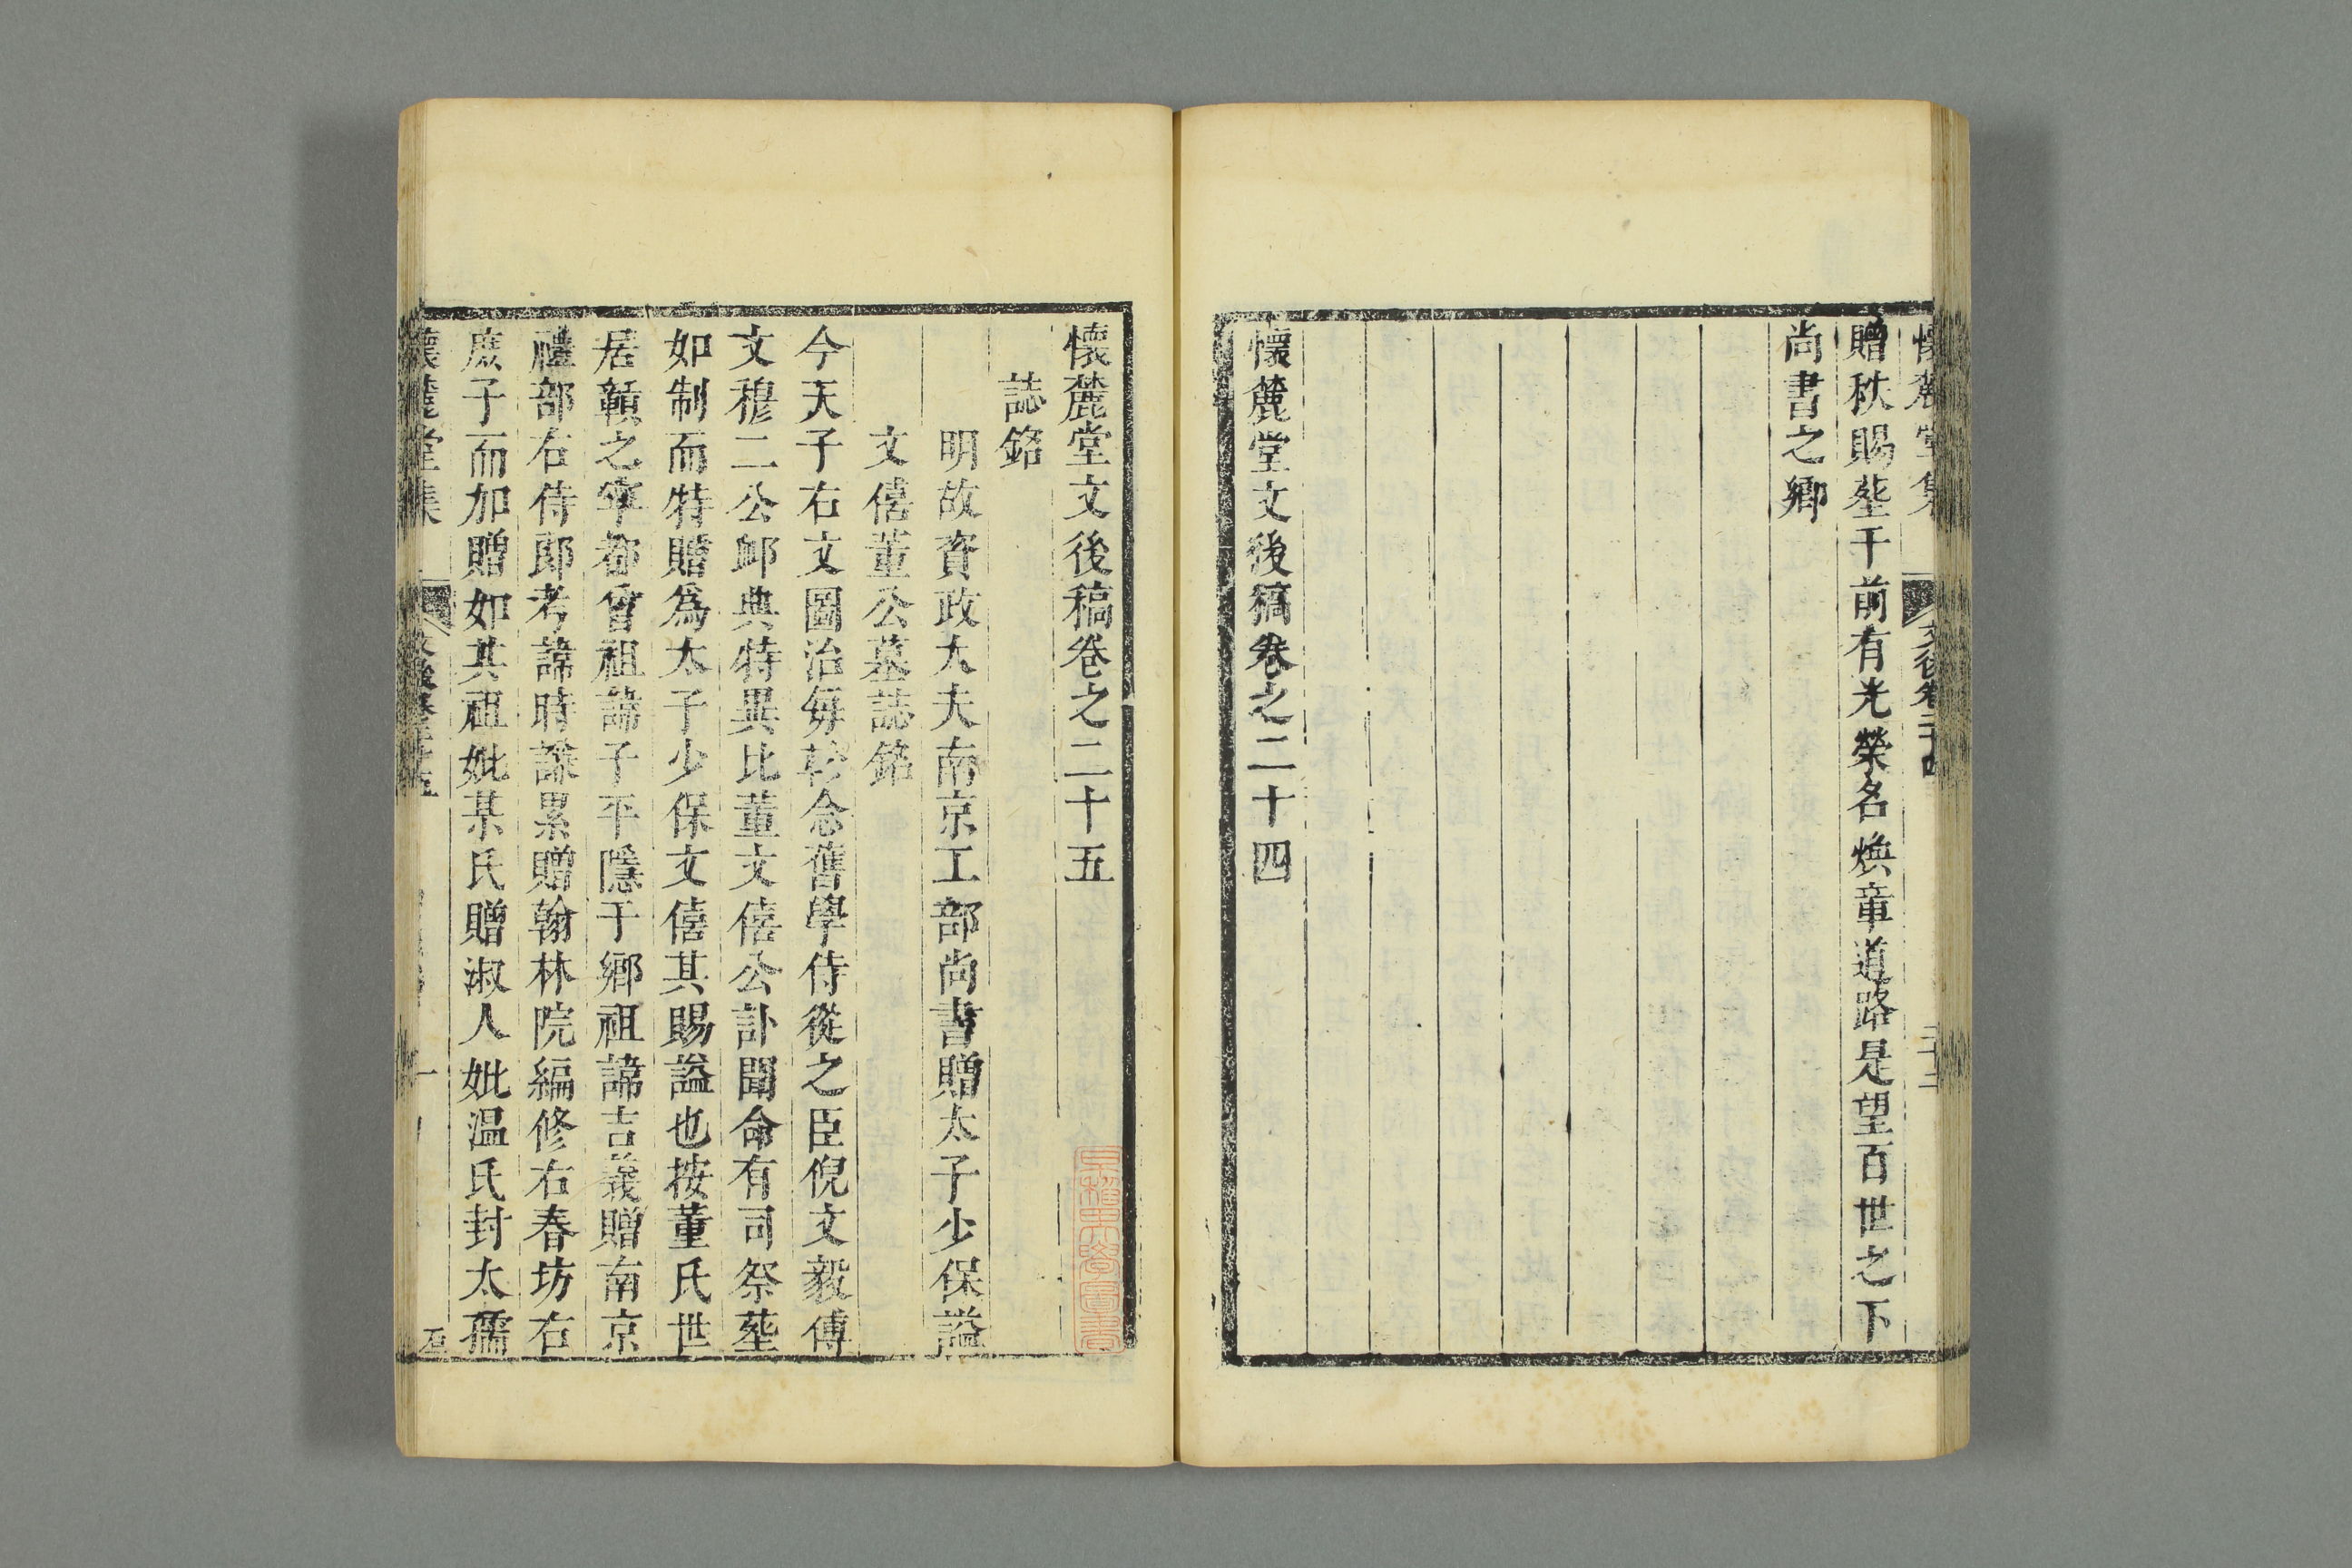 贈秩賜塟于前有光榮名煥章道路是望百世之下
尚書之鄉
懷麓堂文後稿卷之二十四
懷麓堂文後稿卷之二十五
誌銘
明故資政大夫南京工部尚書贈太子少保謚
文僖董公墓誌銘
今天子右文圖治每軫念舊學侍從之臣倪文毅傅
文穆二公卹典特異比董文僖公訃聞命有司祭塟
如制而特贈爲太子少保文僖其賜謚也按董氏世
居贛之寧都曾祖諱子平隱于鄉祖諱吉義贈南京
禮部右侍郎考諱時謙累贈翰林院編修右春坊右
庶子而加贈如其祖妣某氏贈淑人妣温氏封太孺